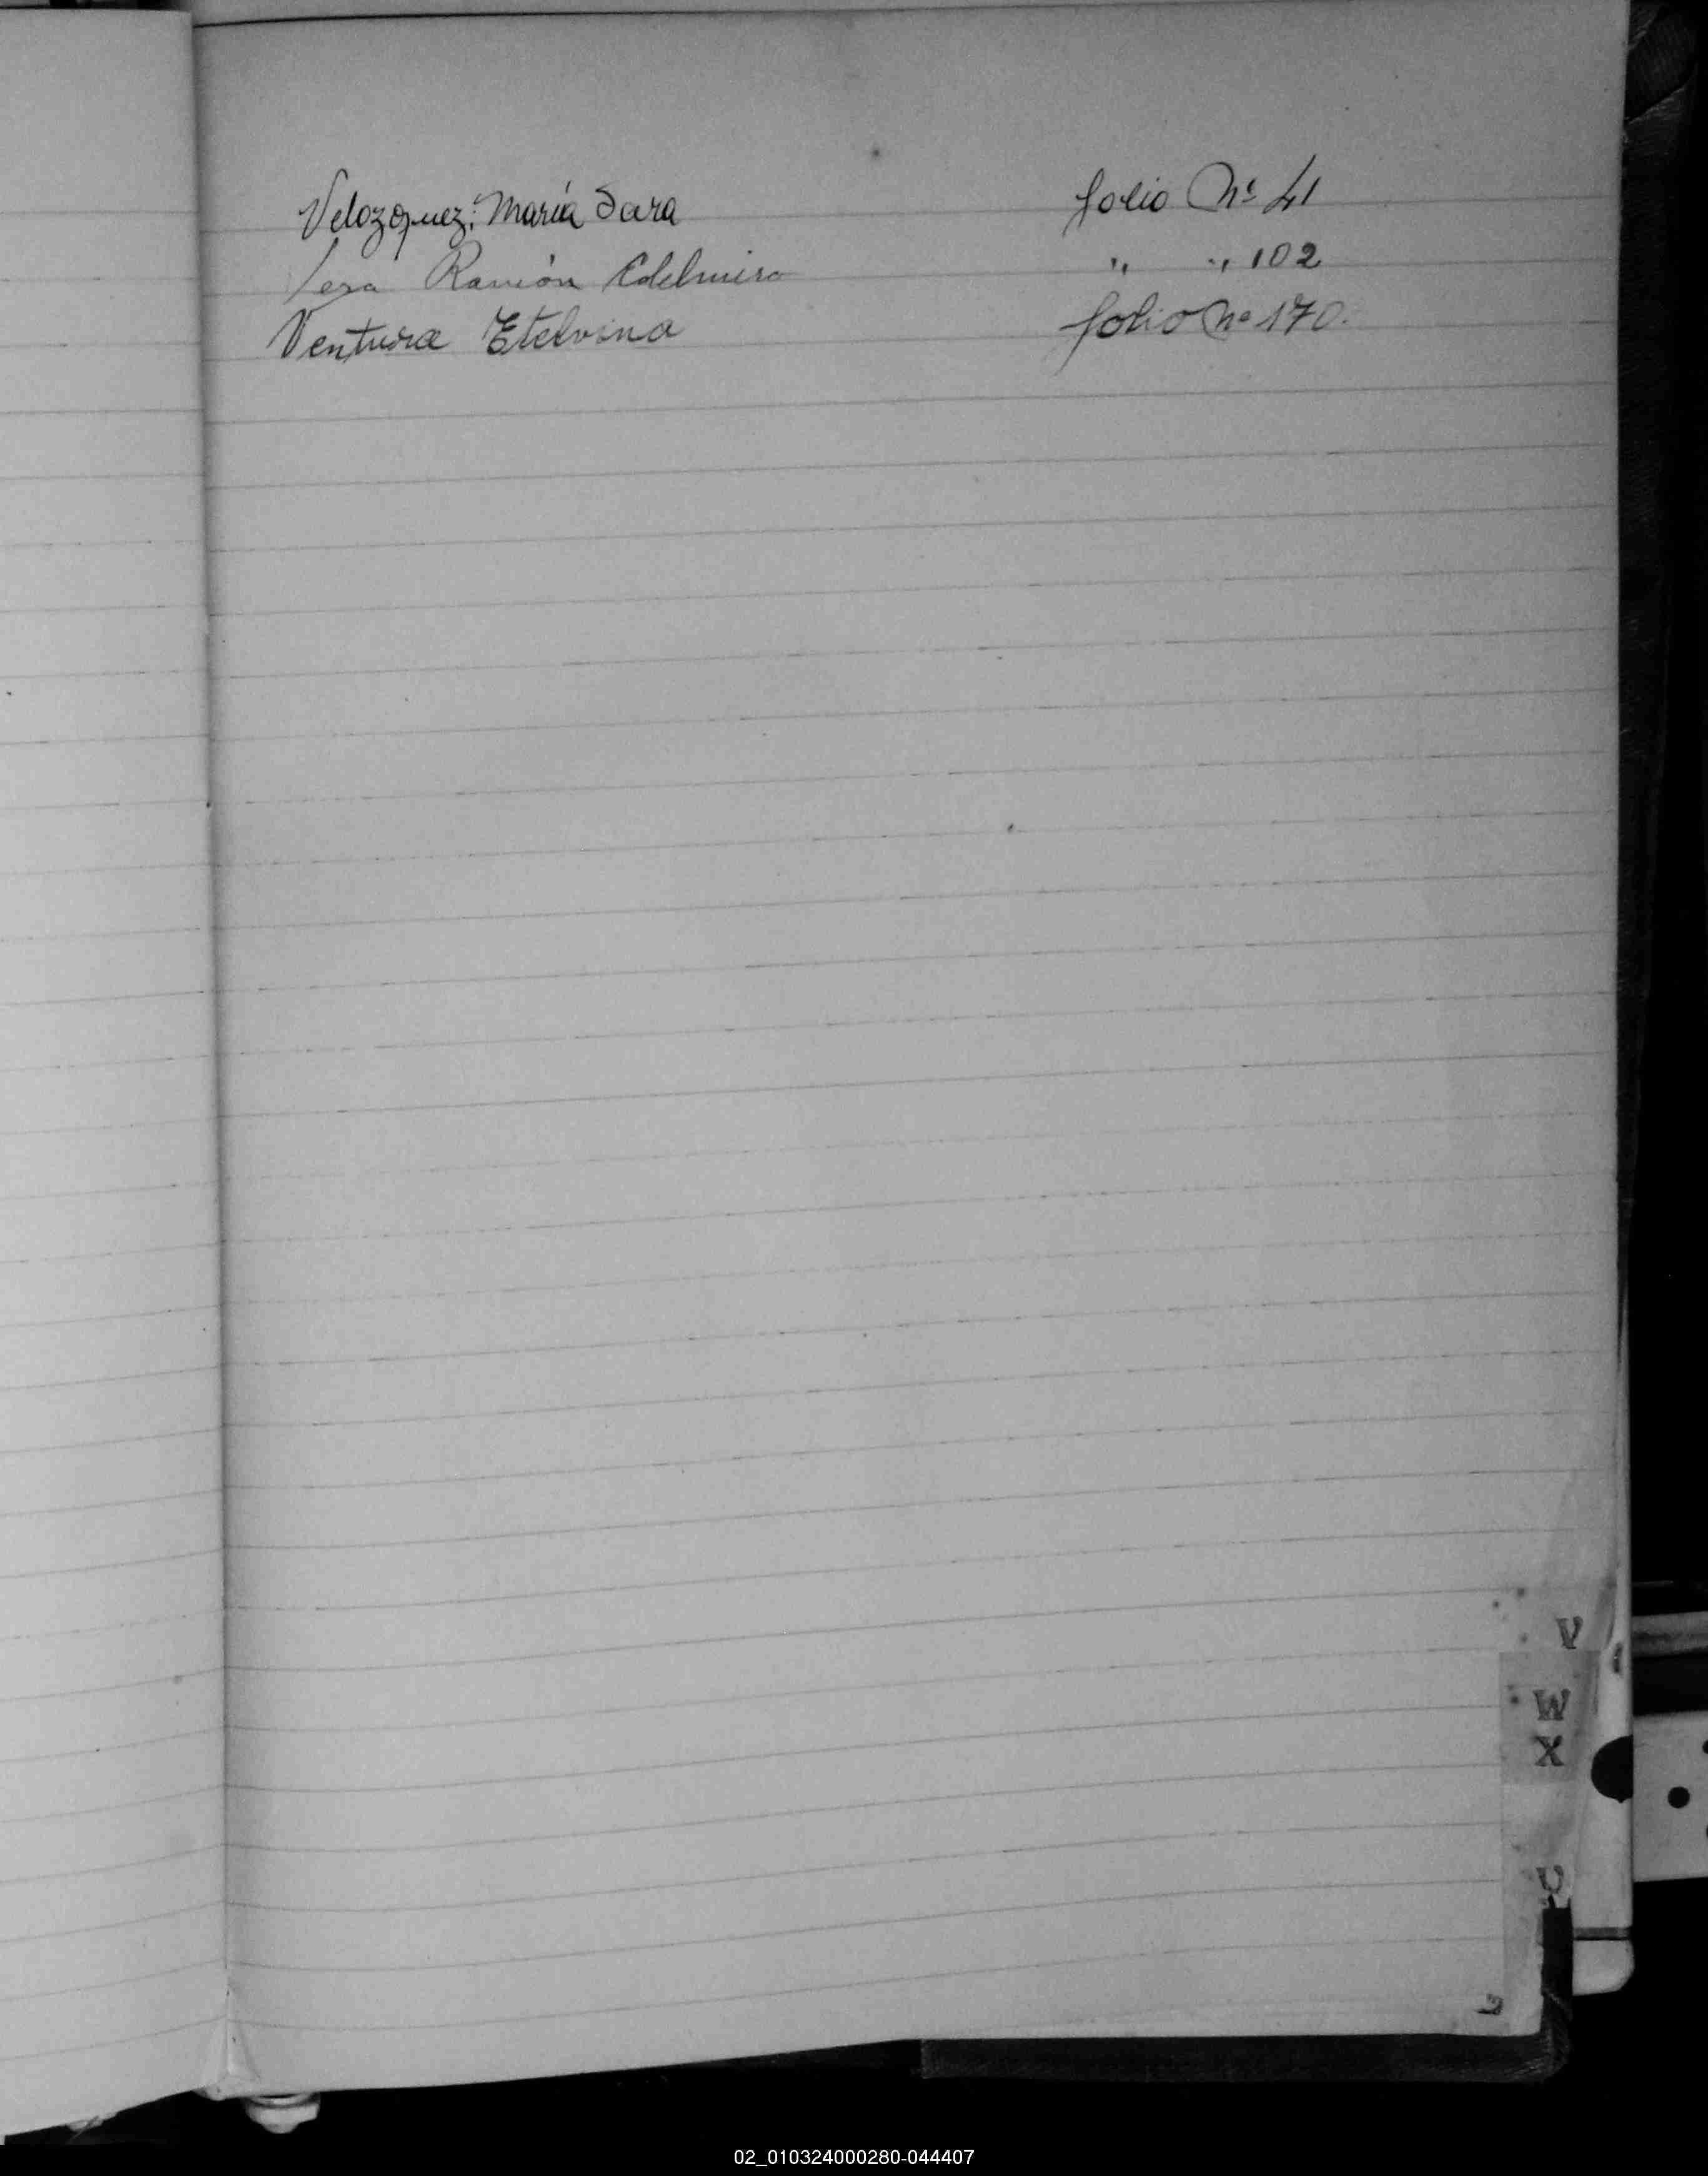 Velozquez: María Sara folio Nº 41
Vera Ramón Edelmiro " " 102
Ventura Etelvina folio Nº 170.
V
W
X
02_010324000280-044407